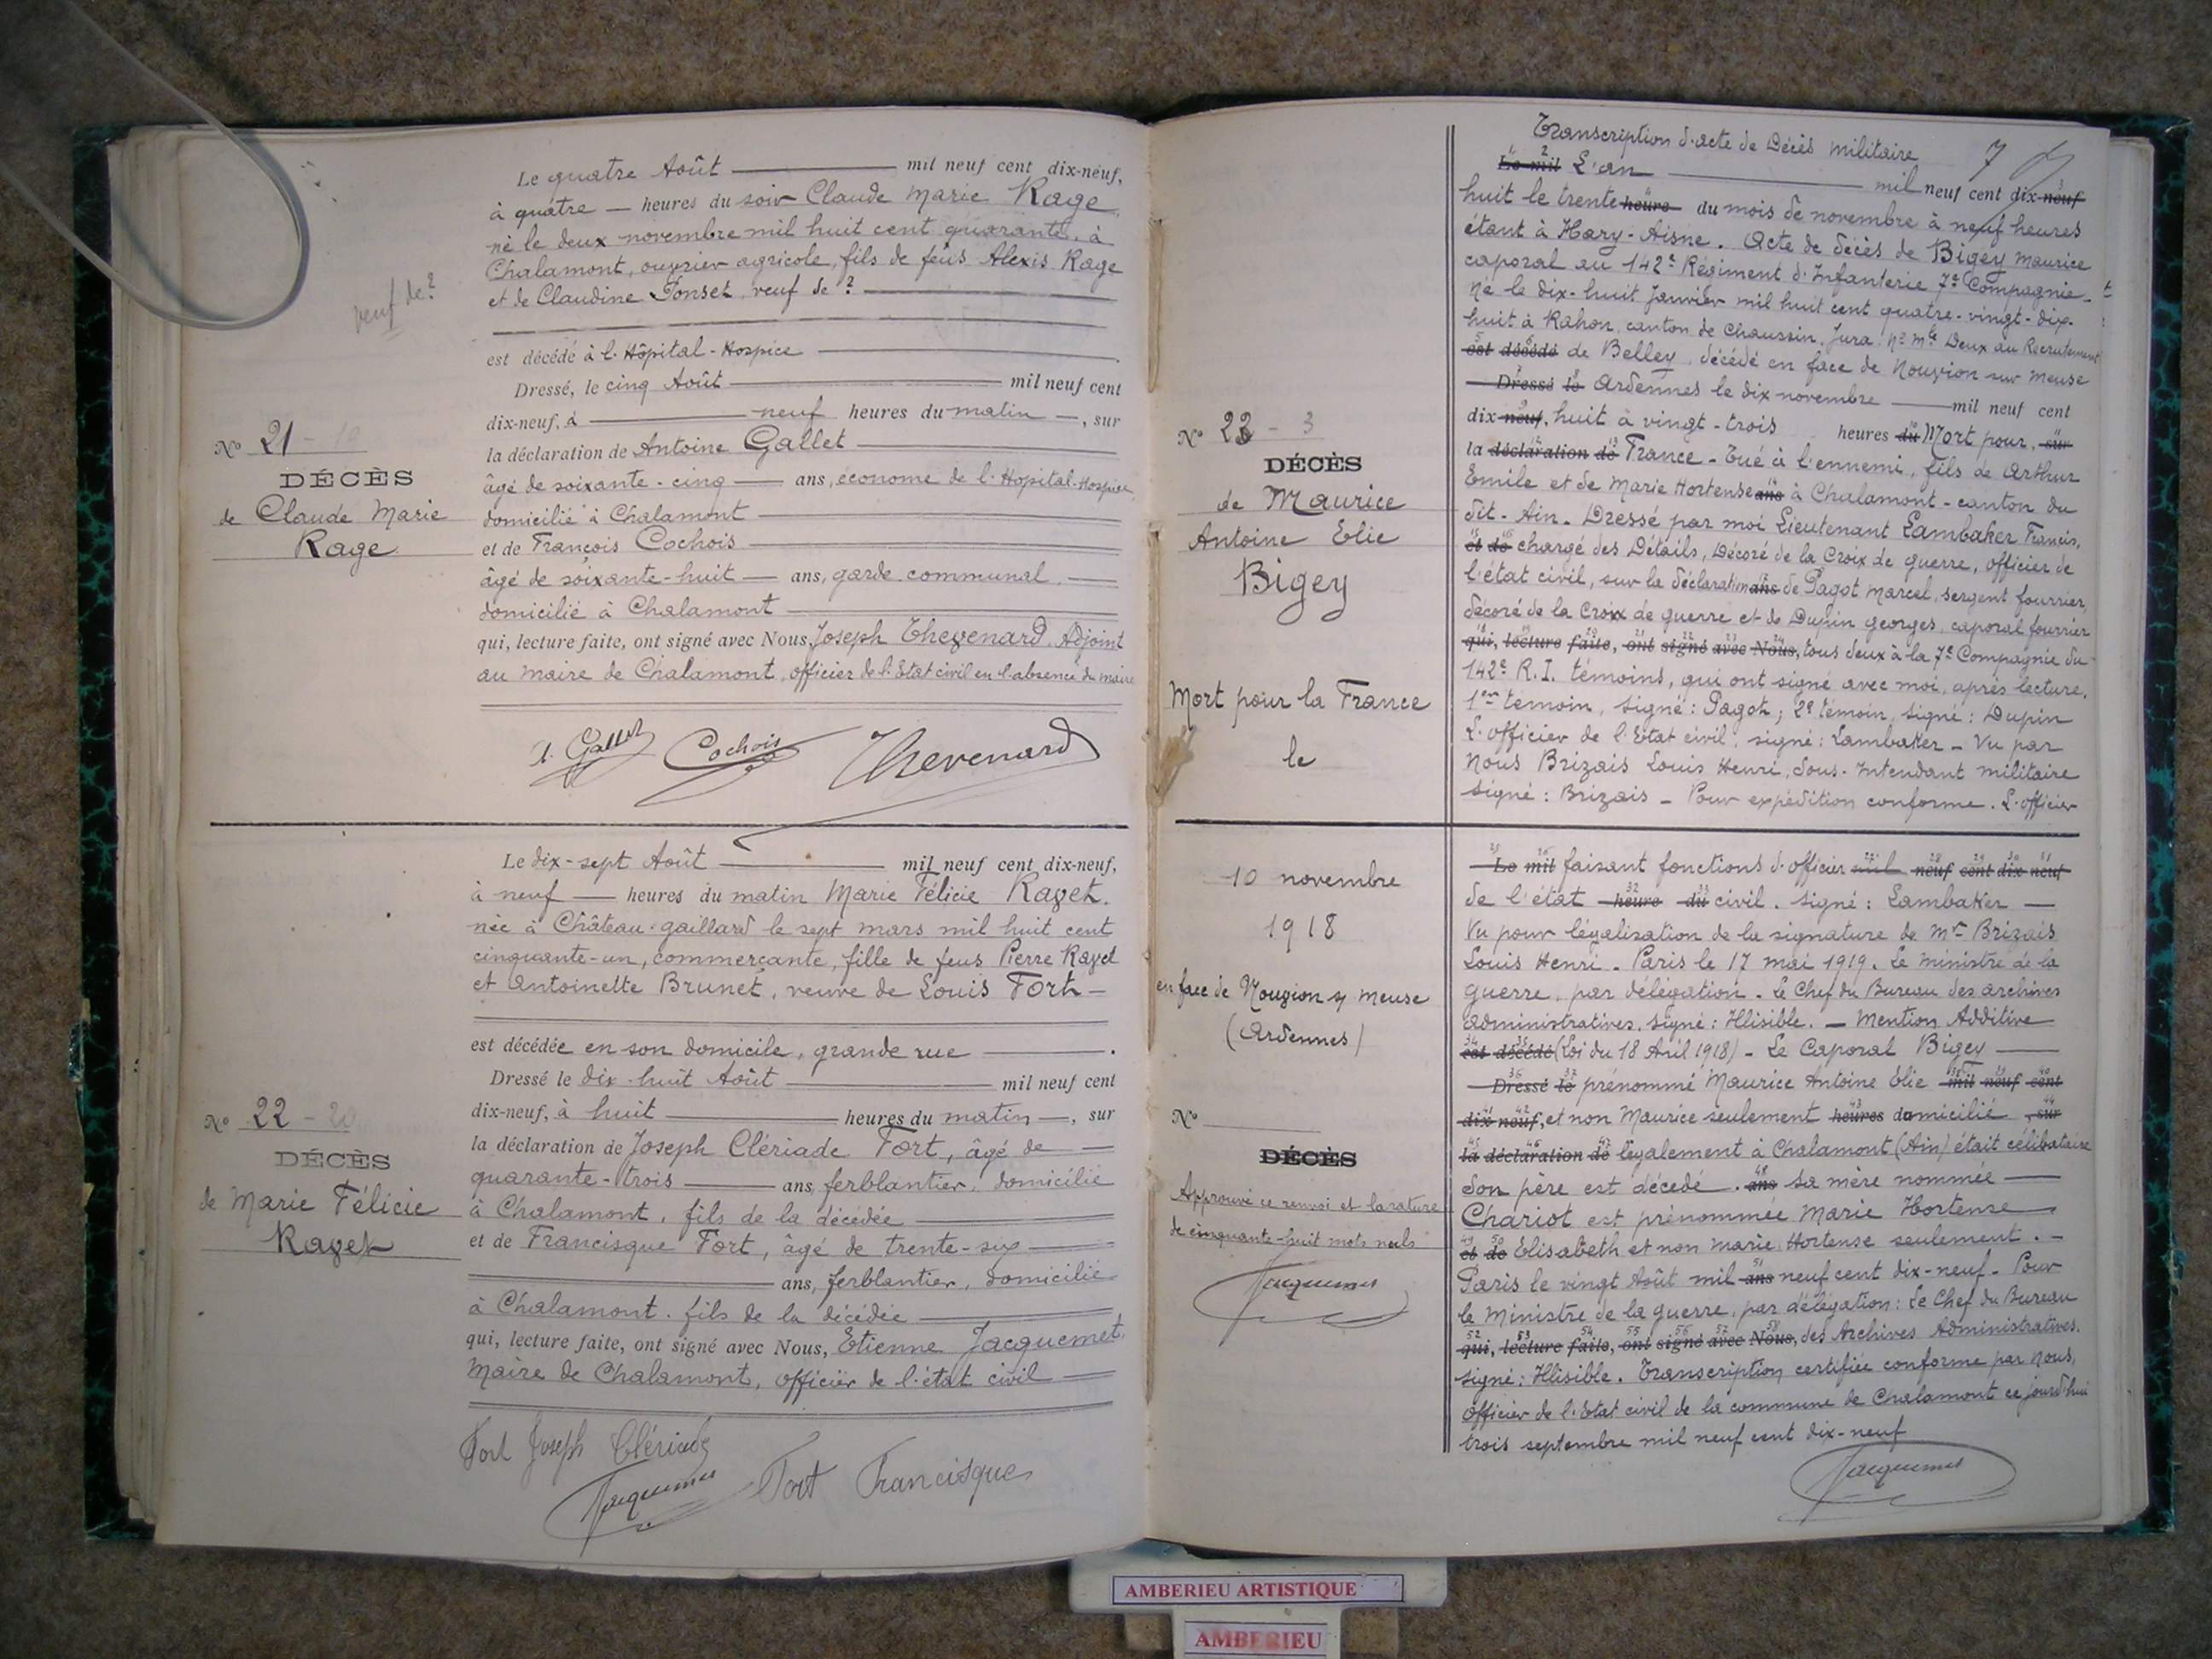 Le quatre Août mil neuf cent dix-neuf,
à quatre heures du soir Claude Marie Rage
né le deux novembre mil huit cent quarante, à
Chalamont, ouvrier agricole, fils de feus Alexis Rage
et de Claudine Ponset, veuf de ?
veuf de ?
est décédé à l'Hôpital-Hospice
Dressé, le cinq Août mil neuf cent
dix-neuf, à neuf heures du matin, sur
la déclaration de Antoine Gallet
âgé de soixante-cinq ans, économe de l'Hopital-Hospice
domicilié à Chalamont
et de François Cochois
âgé de soixante-huit ans, garde communal
domicilié à Chalamont
qui, lecture faite, ont signé avec Nous, Joseph Thevenard, Adjoint
au maire de Chalamont, officier de l'Etat civil en l'absence du maire
N° 21
DÉCÈS
de Claude Marie
Rage
A. Gallet Cochois Thevenard
Le dix-sept Août mil neuf cent dix-neuf,
à neuf heures du matin Marie Félicie Ravet.
née à Château-gaillard le sept mars mil huit cent
cinquante-un, commerçante, fille de feus Pierre Ravet
et Antoinette Brunet, veuve de Louis Fort
est décédée en son domicile, grande rue
Dressé le dix-huit Août mil neuf cent
dix-neuf, à huit heures du matin, sur
la déclaration de Joseph Clériade Fort, âgé de
quarante-trois ans, ferblantier, domicilié
à Chalamont, fils de la décédée
et de Francisque Fort, âgé de trente-six
ans, ferblantier, domicilié
à Chalamont. fils de la décédée
qui, lecture faite, ont signé avec Nous, Etienne Jacquemet,
Maire de Chalamont, officier de l'état civil
N° 22 - 20
DÉCÈS
de Marie Félicie
Ravet
Fort Joseph Clériade
Jacquemet Fort Francisque
Transcription d'acte de Décès militaire 7
Le mil L'an mil neuf cent dix-neuf
huit le trente heure du mois de novembre à neuf heures
étant à Hary-Aisne. Acte de décès de Bigey Maurice
caporal au 142e Régiment d'Infanterie 7e Compagnie
né le dix-huit Janvier mil huit cent quatre-vingt-dix-
huit à Rahon, canton de Chaussin, Jura, No Mle Deux au Recrutement
est décédé de Belley, décédé en face de Nouvion sur Meuse
Dressé le Ardennes le dix novembre mil neuf cent
dix-neuf, huit à vingt-trois heures du Mort pour, sur
la déclaration de France - Tué à l'ennemi, fils de Arthur
Emile et de Marie Hortense ans à Chalamont - canton du
dit - Ain. Dressé par moi Lieutenant Lambaker Francis,
et de chargé des Détails, Décoré de la Croix de guerre, officier de
l'état civil, sur la déclaration ans de Pagot Marcel, sergent fourrier,
décoré de la Croix de guerre et de Dupin Georges, caporal fourrier
qui, lecture faite, ont signé avec Nous, tous deux à la 7e Compagnie du
142e R.I. témoins, qui ont signé avec moi, après lecture.
1er témoin, signé: Pagot; 2e témoin, signé: Dupin
L'officier de l'Etat civil, signé: Lambaker - Vu par
Nous Brizais Louis Henri, Sous-Intendant militaire
signé: Brizais - Pour expédition conforme. L'officier
N° 23 - 3
DÉCÈS
de Maurice
Antoine Elie
Bigey
Mort pour la France
le
10 novembre
1918
en face de Nouvion s/ Meuse
(Ardennes)
Le mil faisant fonctions d'officier mil neuf cent dix neuf
de l'état heure du civil. signé: Lambaker
Vu pour légalisation de la signature de Mr Brizais
Louis Henri. Paris le 17 mai 1919. Le ministre de la
guerre, par délégation. Le Chef du Bureau des archives
administratives, signé: Illisible. - Mention Additive
est décédé (Loi du 18 Avril 1918) - Le Caporal Bigey
Dressé le prénommé Maurice Antoine Elie mil neuf cent
dix neuf, et non Maurice seulement heures domicilié, sur
la déclaration de légalement à Chalamont (Ain) était célibataire
Son père est décédé. ans sa mère nommée
Chariot est prénommée Marie Hortense
et de Elisabeth et non Marie Hortense seulement. -
Paris le vingt Août mil ans neuf cent dix-neuf - Pour
le Ministre de la guerre, par délégation: Le Chef du Bureau
qui, lecture faite, ont signé avec Nous, des Archives Administratives.
signé: Illisible. Transcription certifiée conforme par Nous,
officier de l'Etat civil de la commune de Chalamont ce jourd'hui
trois septembre mil neuf cent dix-neuf
Jacquemet
N°
DÉCÈS
Approuvé ce renvoi et la rature
de cinquante-huit mots nuls
Jacquemet
AMBERIEU ARTISTIQUE
AMBERIEU